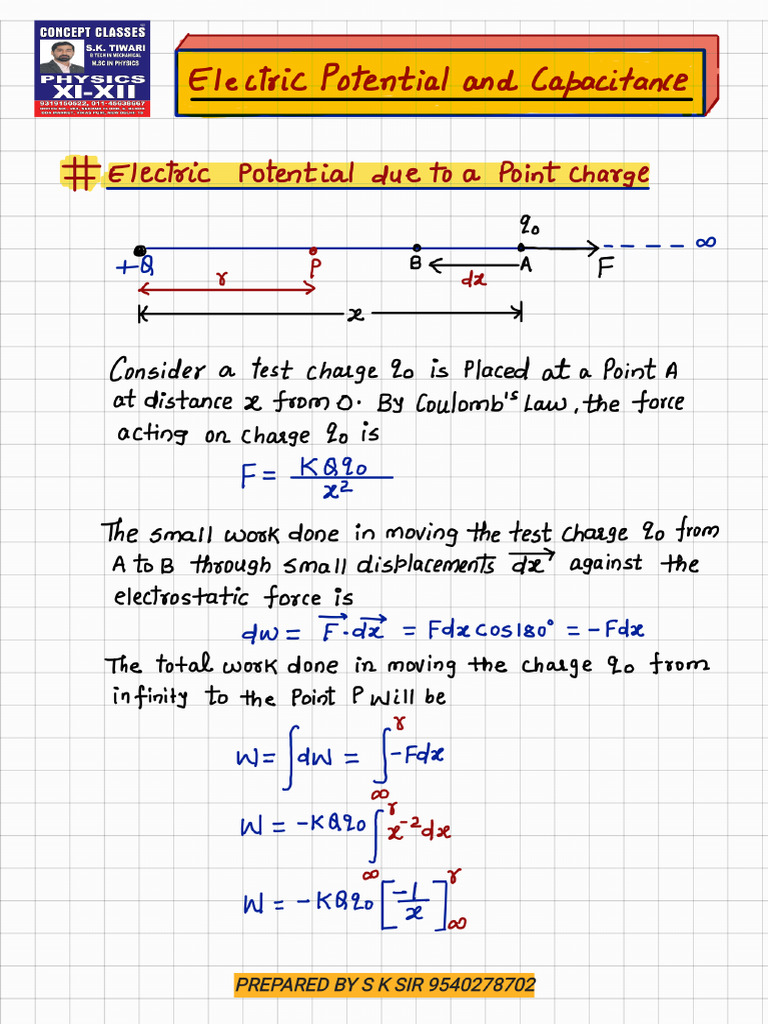 CONCEPT CLASSES
S.K. TIWARI
B TECH IN MECHANICAL
M.SC IN PHYSICS
PHYSICS
XI-XII
9319150622, 011-45638667
Electric Potential and Capacitance
# Electric Potential due to a Point Charge
q₀
+Q P B A F ∞
r dx
x
Consider a test charge q₀ is Placed at a Point A
at distance x from O. By Coulomb's Law, the force
acting on charge q₀ is
F = KQq₀/x²
The small work done in moving the test charge q₀ from
A to B through small displacements →dx against the
electrostatic force is
dw = →F·→dx = Fdx cos180° = -Fdx
The total work done in moving the charge q₀ from
infinity to the Point P will be
W = ∫dW = ∫_∞^r -Fdx
W = -KQq₀ ∫_∞^r x⁻²dx
W = -KQq₀ [-1/x]_∞^r
PREPARED BY S K SIR 9540278702